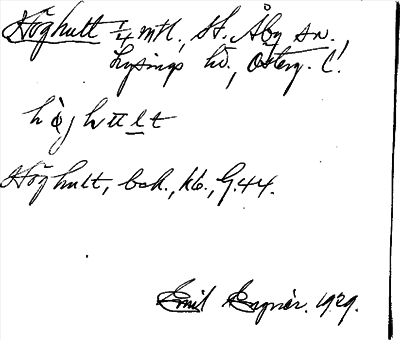 Höghult 1/4 mtl, St. Åby sn.,
Lysings hd, Österg. l.
hö̀ghult
Höghult, bok., kb., G.44.
Emil Egnér. 1929.